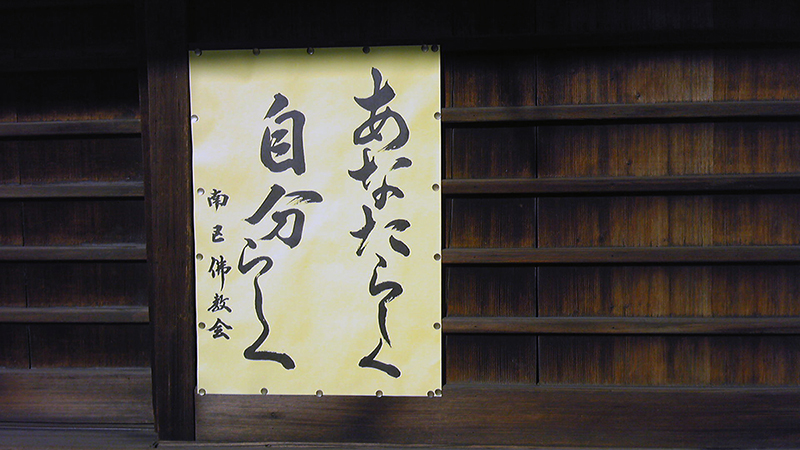 あなたらしく
自分らしく
南区佛教会